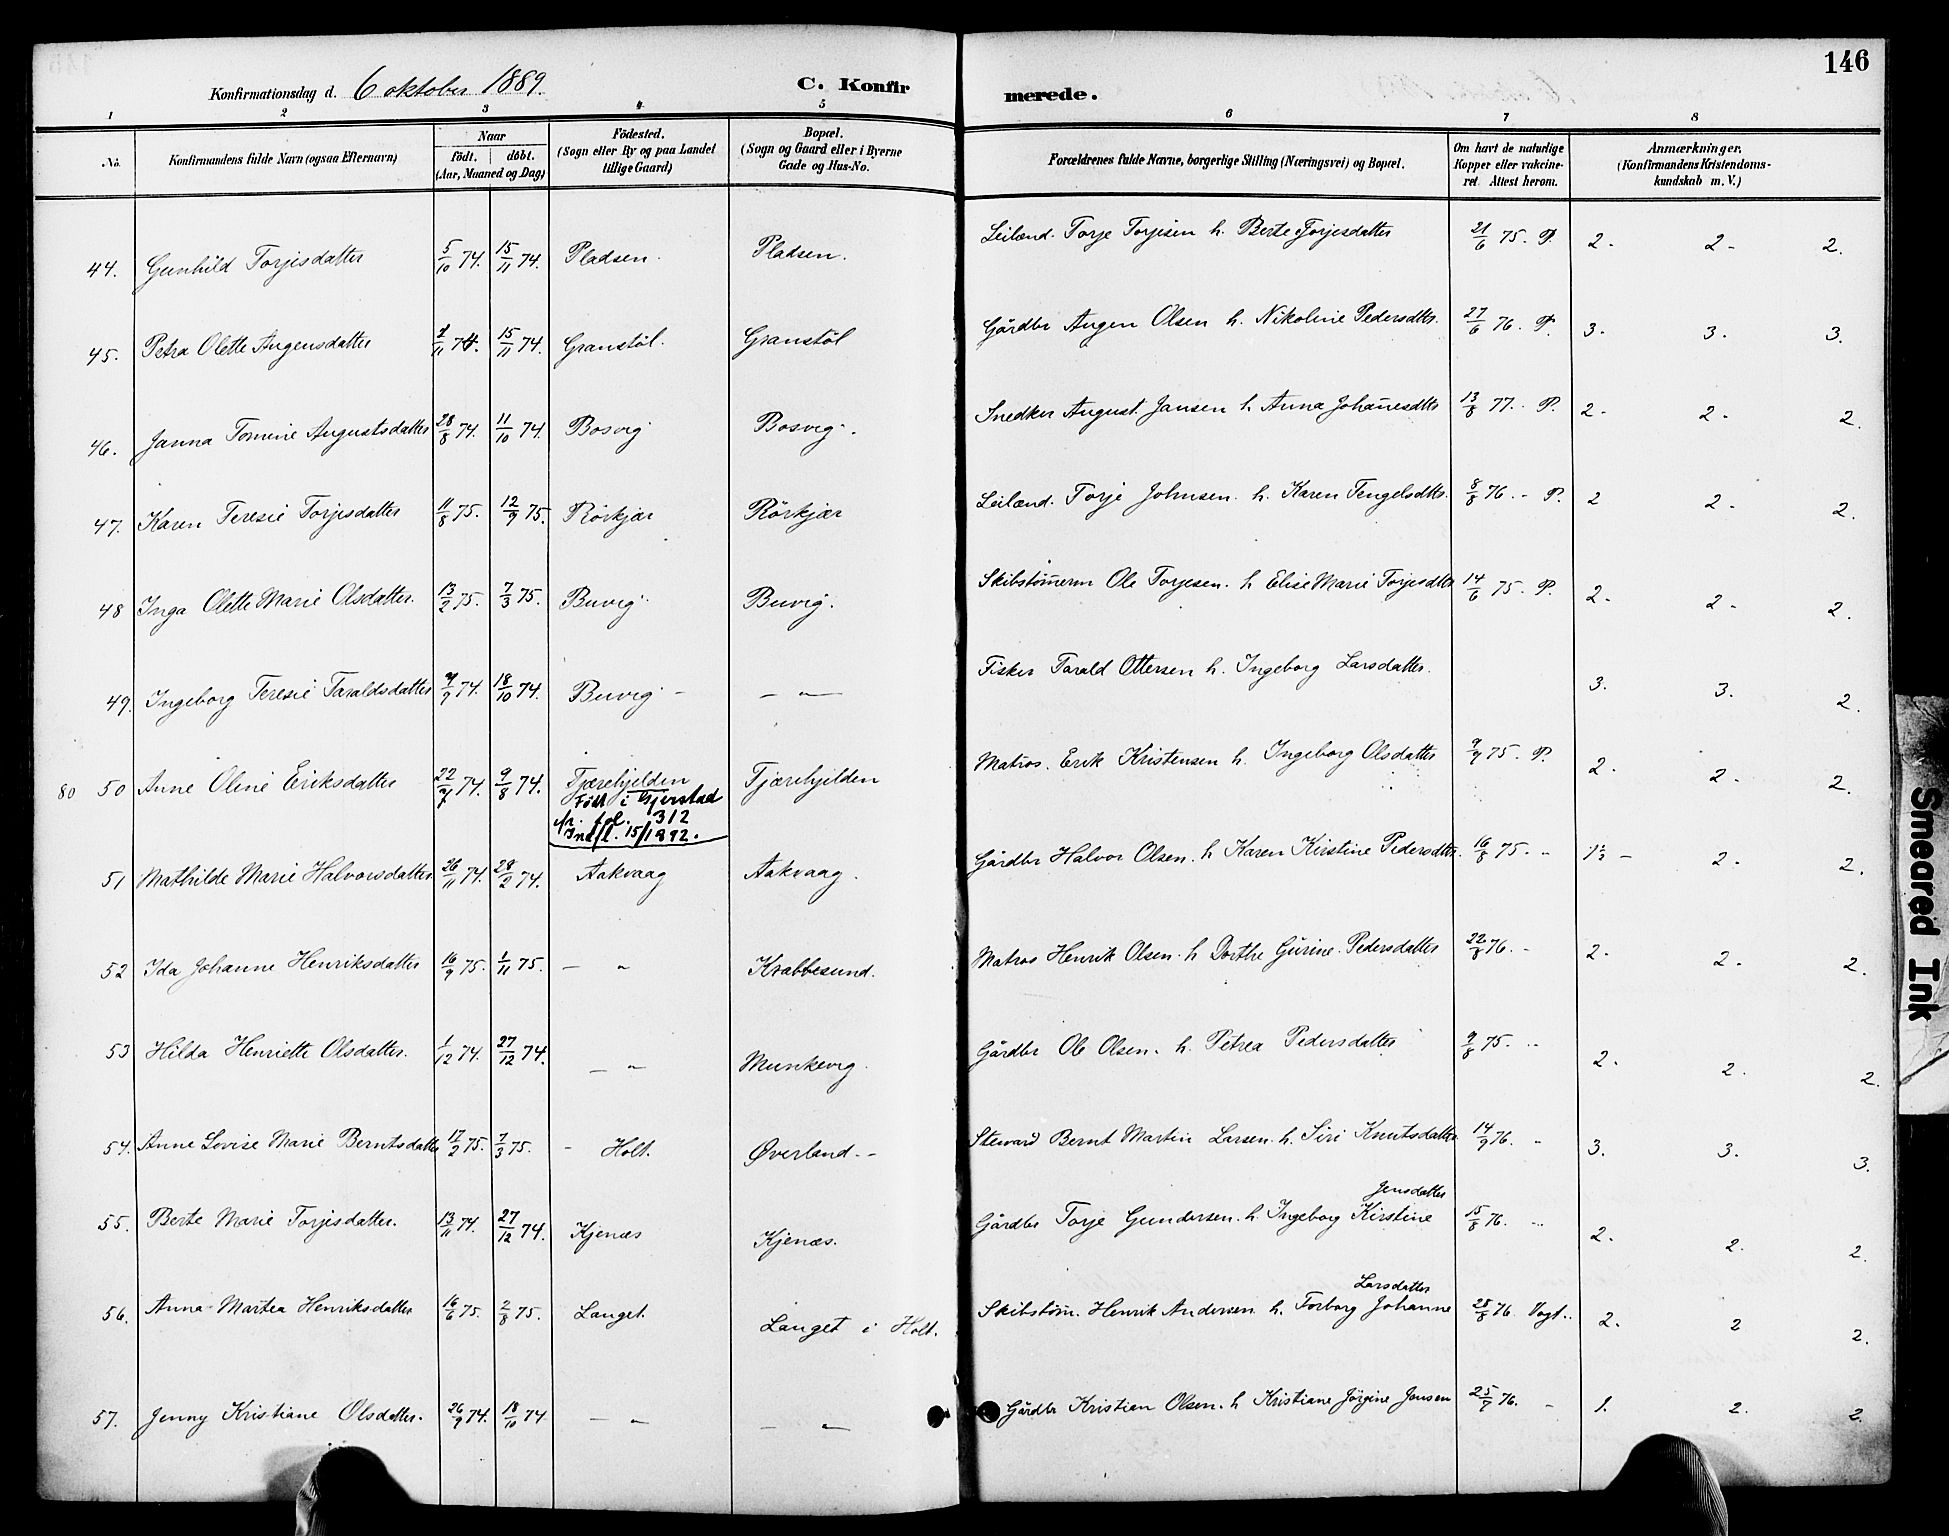 146
Konfirmationsdag d. 6 oktober 1889.
C. Konfirmerede.
1 2 3 4 5 6 7 8
No.
Konfirmandens fulde Navn (ogsaa Efternavn)
Naar
födt. döbt.
(Aar, Maaned og Dag)
Födested.
(Sogn eller By og paa Landet
tillige Gaard)
Bopæl.
(Sogn og Gaard eller i Byerne
Gade og Hus-No.
Forældrenes fulde Navne, borgerlige Stilling (Næringsvei) og Bopæl.
Om havt de naturlige
Kopper eller vakcine-
ret. Attest herom.
Anmærkninger.
(Konfirmandens Kristendoms-
kundskab m. V.)
44. Gunhild Torjesdatter 5/10 74. 15/11 74. Pladsen. Pladsen. Leilænd. Torje Torjesen h. Berte Torjesdatter 21/6 75. P. 2. 2. 2.
45. Petra Olette Augensdatter 1/11 74. 15/11 74. Granstöl. Granstöl Gårdbr Augen Olsen h. Nikoline Pedersdtr. 27/6 76. P. 3. 3. 3.
46. Janna Tomine Augustsdatter 28/8 74. 11/10 74. Bosvig Bosvig. Snedker August Jansen h. Anna Johañesdtr 13/8 77. P. 2. 2. 2.
47. Karen Teresie Torjesdatter 11/8 75. 12/9 75. Rörkjær Rörkjær Leilænd. Torje Johnsen. h. Karen Tengelsdtr. 8/8 76. - P. 2 2. 2.
48 Inga Olette Marie Olsdatter. 13/2 75. 7/3 75. Buvig Buvig. Skibstömerm Ole Torjesen. h Elise Marie Torjesdtr 14/6 75 P. 2. 2. 2.
49. Ingeborg Teresie Taraldsdatter 9/9 74. 18/10 74. Buvig - - " - Fisker Tarald Ottersen h. Ingeborg Larsdatter. 3. 3. 2.
80 50 Anne Oline Eriksdatter 22/7 74. 9/8 74. Tjærehjelden Tjærehjelden Matros. Erik Kristensen h. Ingeborg Olsdatter 9/9 75. P. 2. 2. 2.
Födt i Gjerstad
Nr. fol. 312
Indfl. 15/1892.
51 Mathilde Marie Halvorsdatter. 26/11 74. 28/2 74. Aakvaag Aakvaag. Gårdbr Halvor Olsen. h Karen Kirstine Pedersdtr. 16/8 75. " 1½ - 2. 2.
52 Ida Johanne Henriksdatter 16/9 75. 1/11 75. - " Krabbesund. Matros Henrik Olsen. h Dorthe Gurine Pedersdatter 22/8 76. - 2. 2. 2.
53 Hilda Henriette Olsdatter. 1/12 74. 27/12 74. - " Munkevig. Gårdbr Ole Olsen. h. Petrea Pedersdatter 9/8 75. " 2. 2. 2.
54. Anne Lovise Marie Berntsdatter 17/2 75. 7/3 75. - Holt. Øverland. - Steward Bernt Martin Larsen. h. Siri Knutsdatter 14/9 76. " 3. 3. 3.
55. Berte Marie Torjesdatter. 13/11 74. 27/12 74. Kjenæs Kjenæs. Gårdbr Torje Gundersen. h. Ingeborg Kirstine Jensdatter 15/8 76. " 2. 2. 2.
56. Anna Martea Henriksdatter 16/6 75. 2/8 75. Langet. Langet i Holt. Skibstöm. Henrik Andersen h. Torborg Johanne Larsdatter 28/8 76 Vogt. 2. 2 2.
57. Jenny Kristiane Olsdatter. 26/9 74. 18/10 74 - " - " Gårdbr Kristian Olsen. h Kristiane Jörgine Jansen 25/7 76. - 1. 2. 2.
Smeared Ink